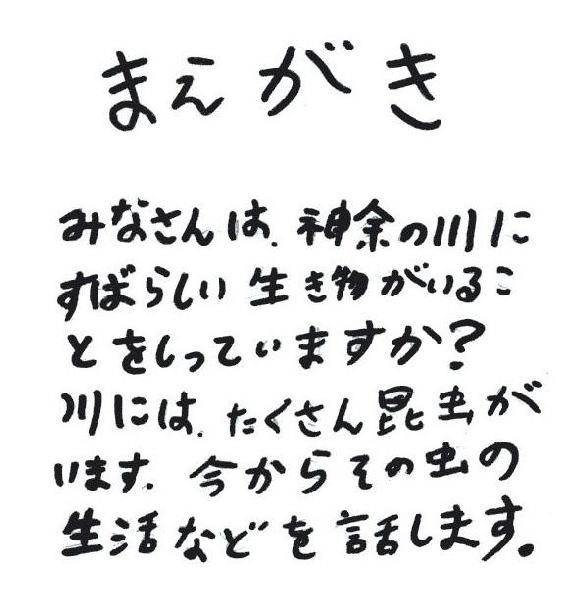 まえがき
みなさんは、神余の川に
すばらしい生き物がいるこ
とをしっていますか?
川には、たくさん昆虫が
います。今からその虫の
生活などを話します。